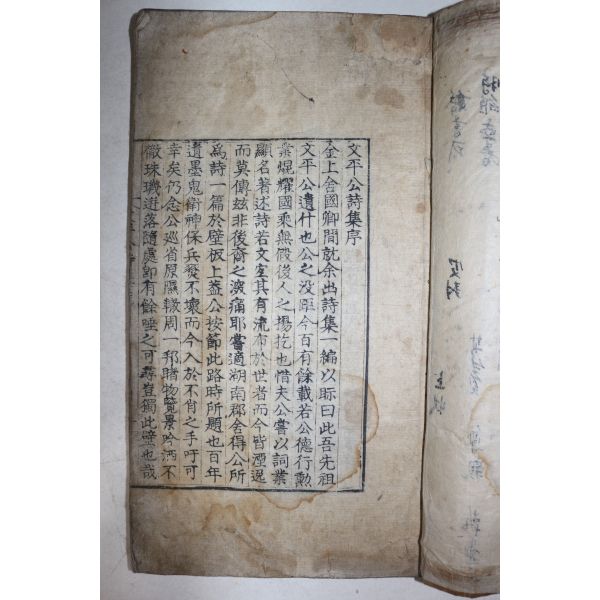 文平公詩集序
金上舍國卿間就余出詩集一編以眎曰此吾先祖
文平公遺什也公之没距今百有餘載若公德行勲
業焜耀國乘無假後人之揚扢也惜夫公嘗以詞業
顯名著述詩若文寔其有流布於世者而今皆湮逸
而莫傳玆非後裔之深痛耶嘗適湖南郡舍得公所
爲詩一篇於壁板上盖公按節此路時所題也百年
遺墨鬼衛神保兵燹不壞而今入於不肖之手吁可
幸矣仍念公巡省原隰轍周一邦睹物覽景吟洒不
徹珠璣迸落隨處卽有餘唾之可尋豈獨此壁也哉